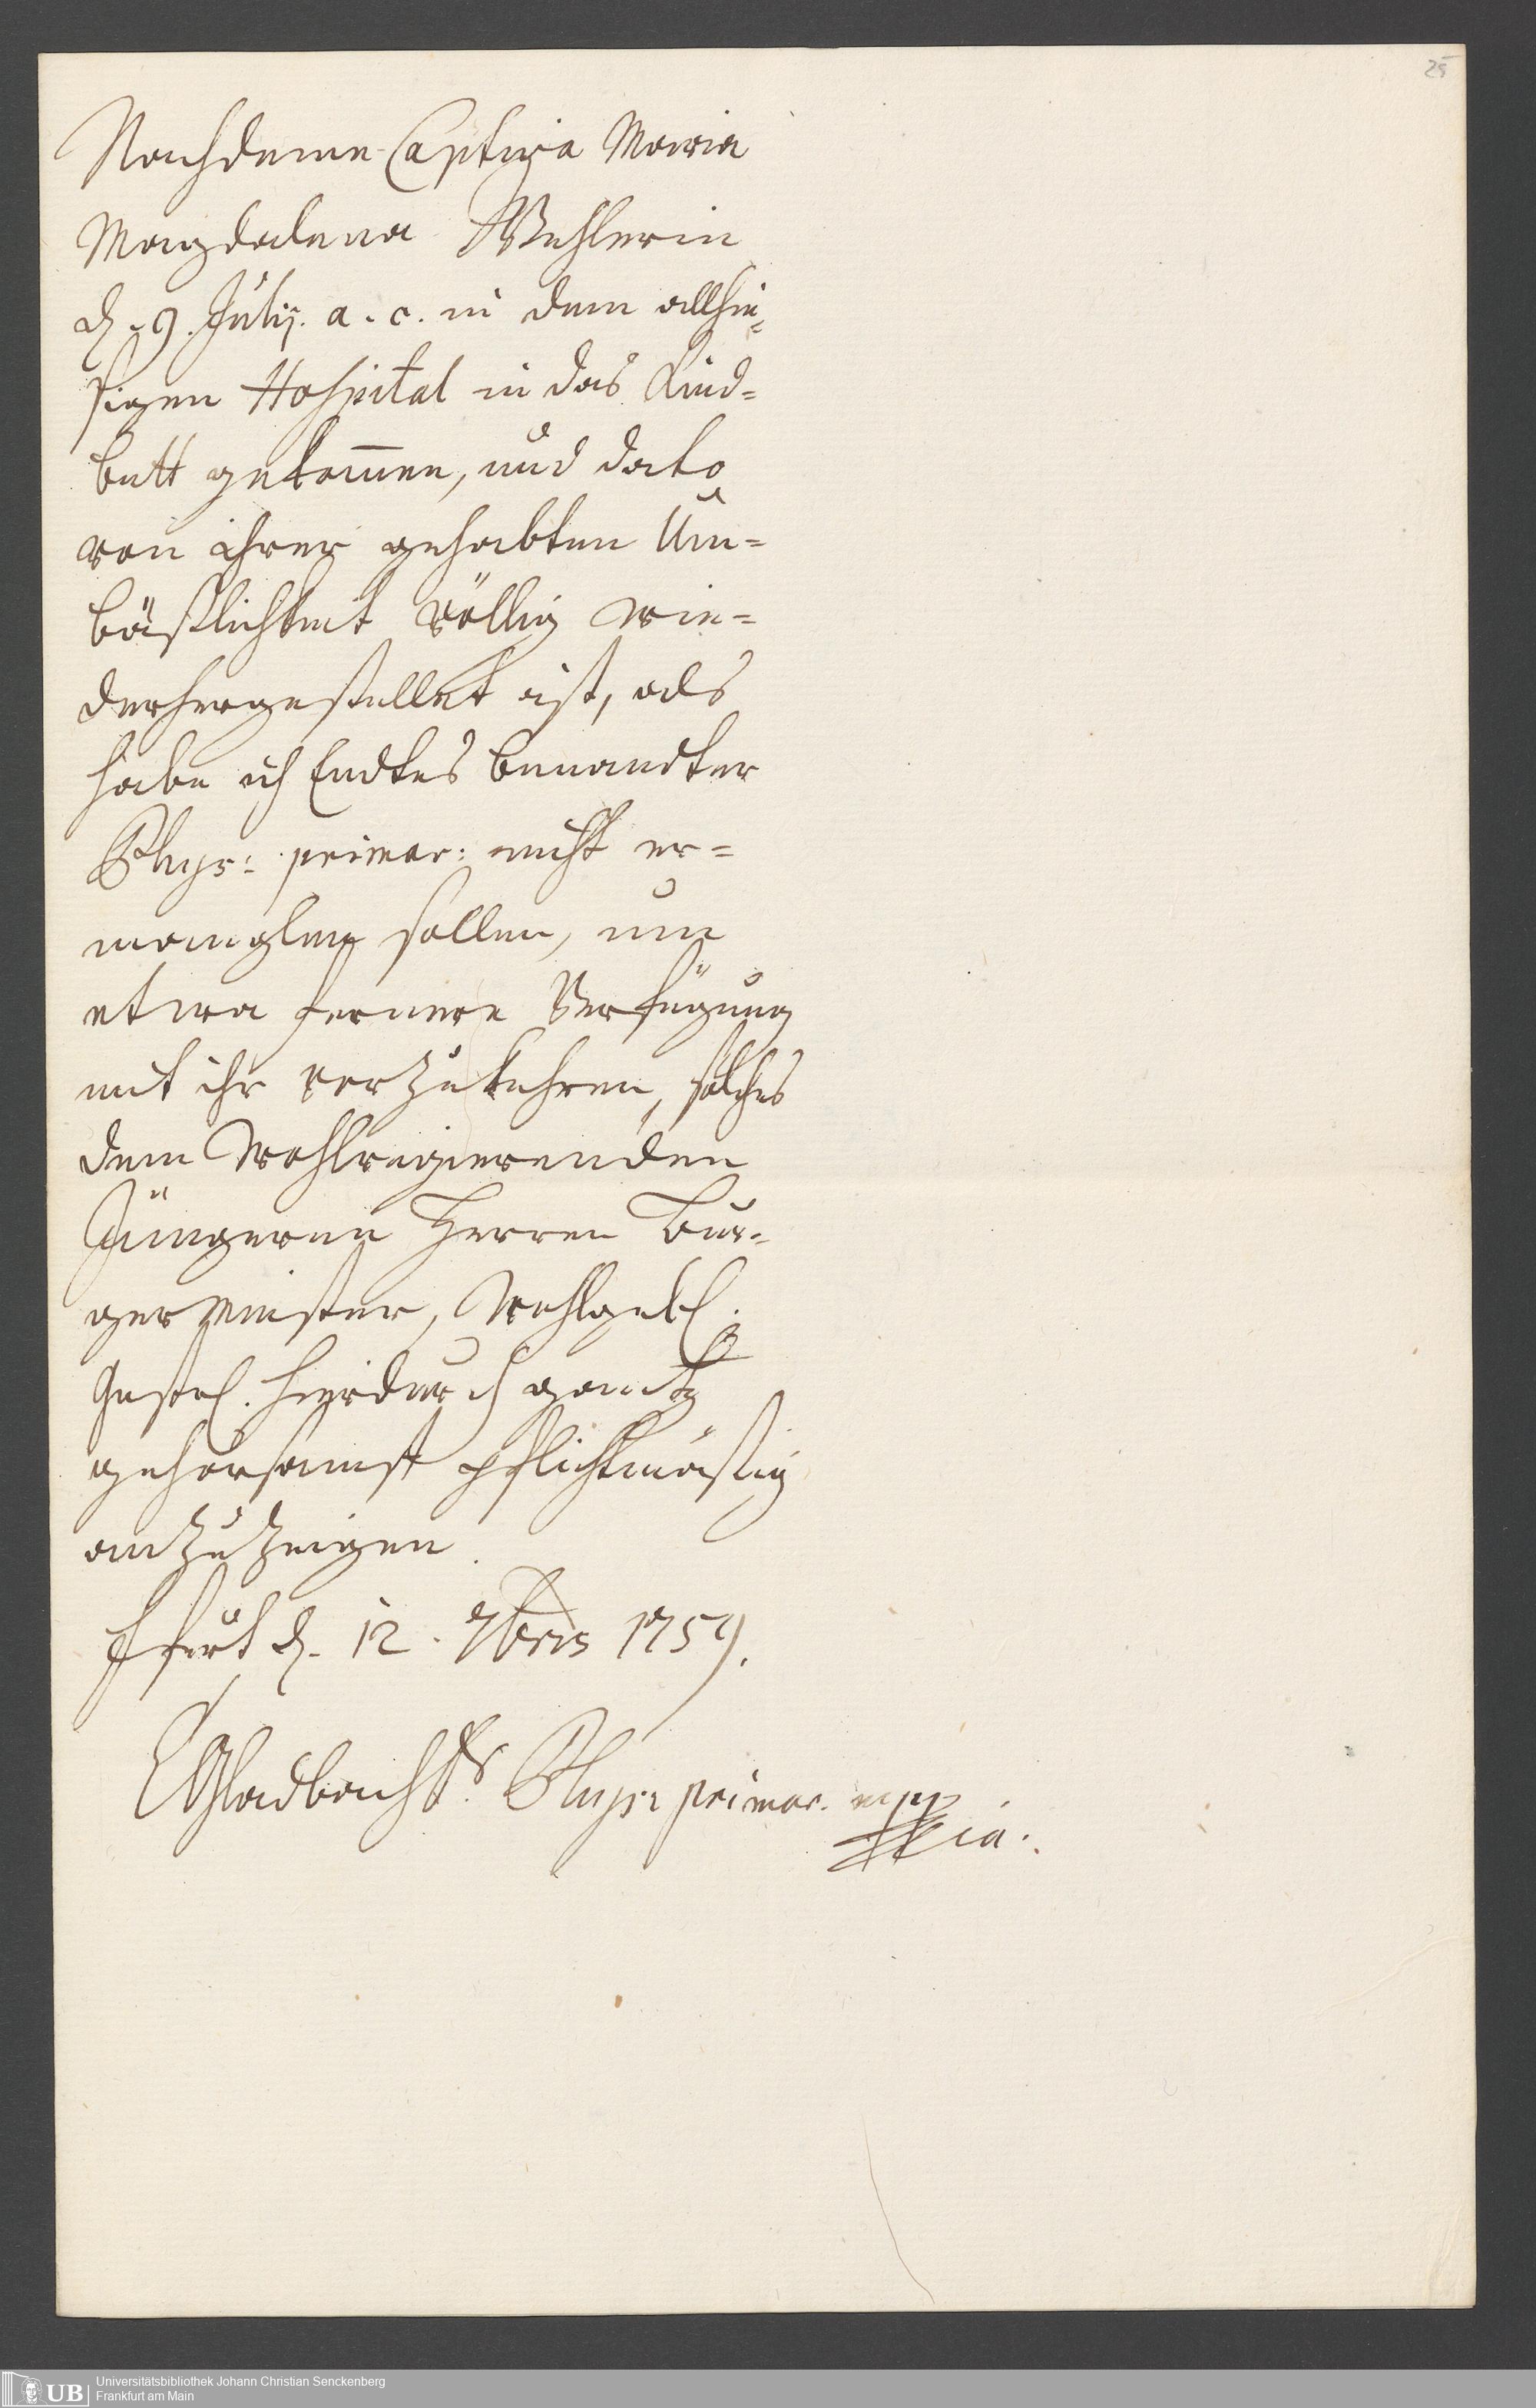 25
Nachdeme Captiva Maria
Magdalena Wehlerin
d. 9. Julij. a. c. in dem allhie-
sigen Hospital in das Kind-
bett gekom̄en, und dato
von ihrer gehabten Un-
bäßlichkeit völlig wie-
derhergestellet ist, als
habe ich Endtes benandter
Phys: primar: nicht er-
manglen sollen, um
etwa fernere Verfügung
mit ihr vorzukehren, solches
dem Wohlregierenden
Jüngeren Herren Bur-
germeister, Wohlgeb.
Gestr. hierdurch gantz
gehorsamst pflichtmäßig
anzuzeigen.
Ffurt d. 12. 7bris 1759.
Gladbach Dr. Phys: primar. mpp
ia.
UB
Universitätsbibliothek Johann Christian Senckenberg
Frankfurt am Main